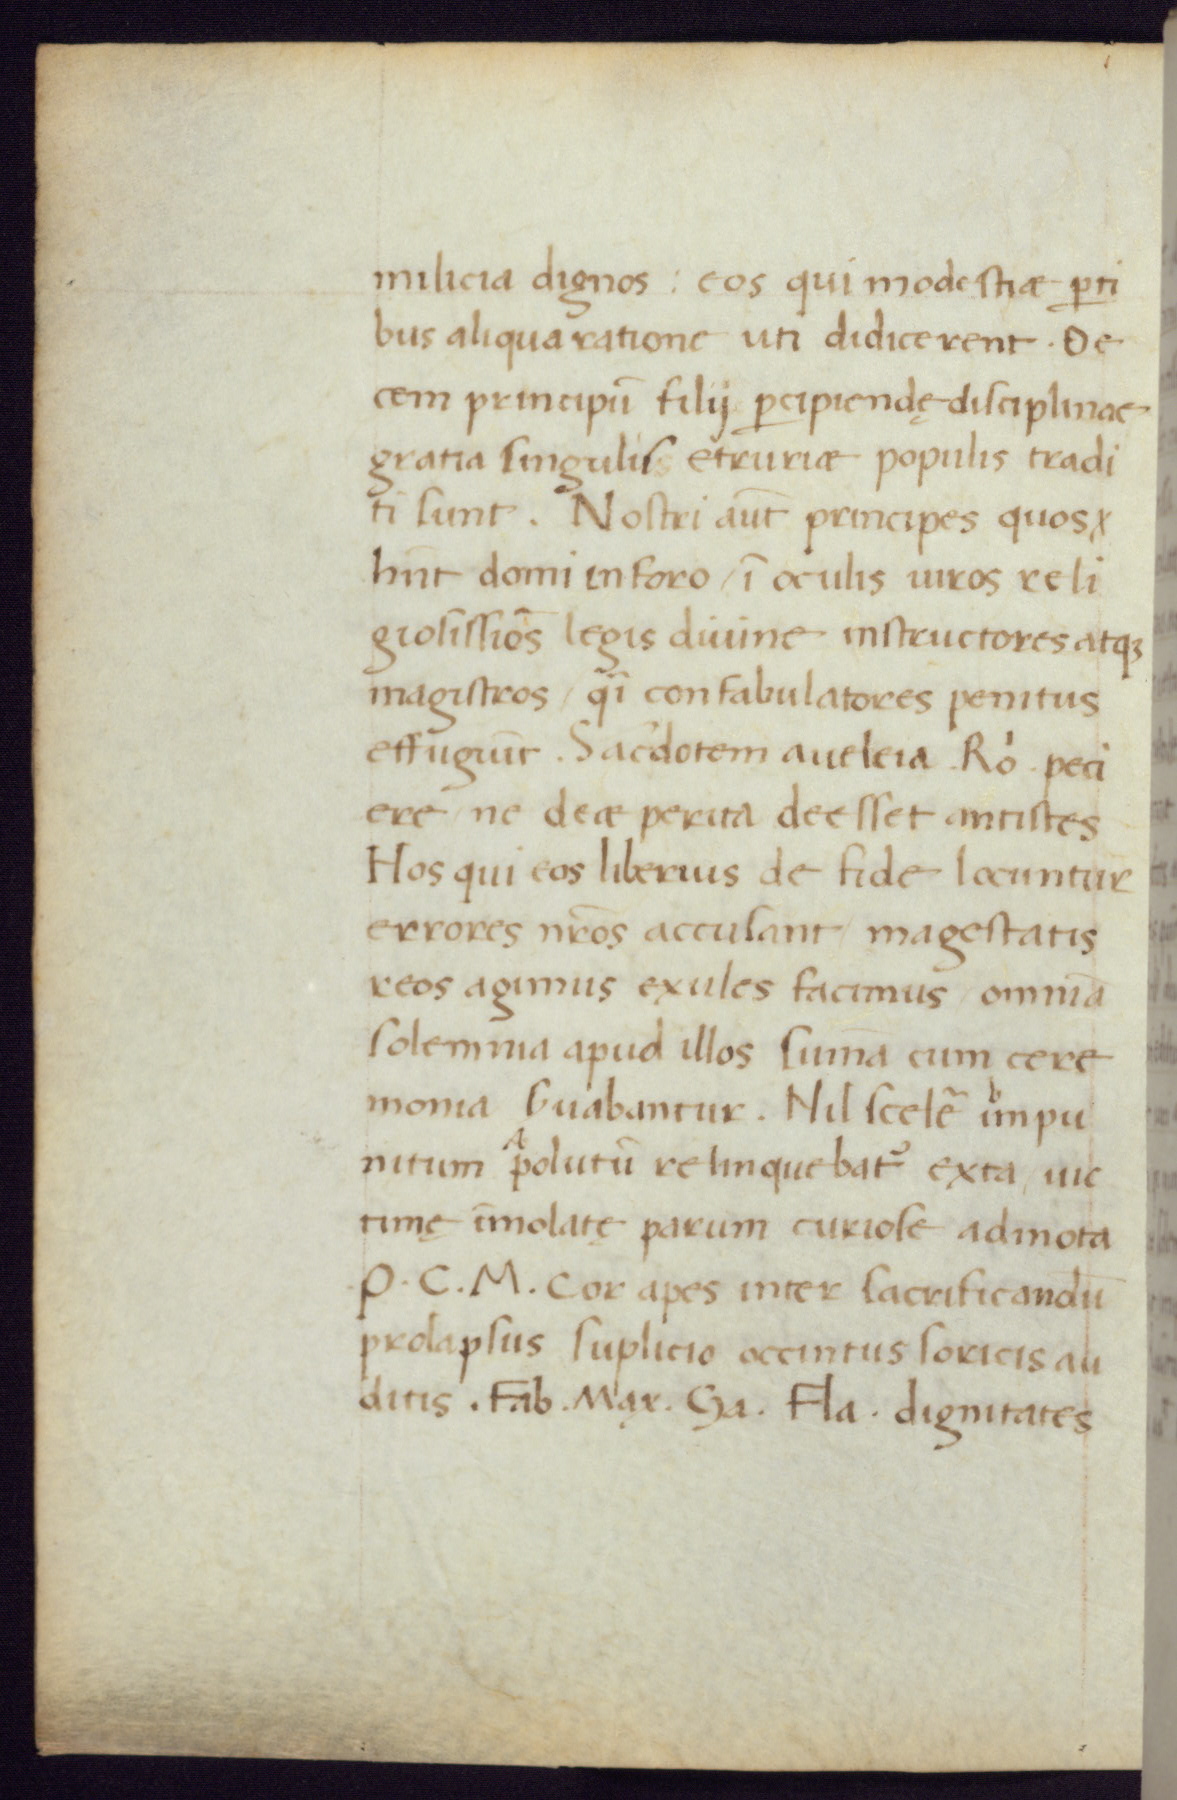 milicia dignos : eos qui modestiæ ꝑti
bus aliqua ratione uti didicerent. De
cem principū filij ꝑcipiendę disciplinae
gratia singulis etruriæ populis tradi
ti sunt. Nostri aūt principes quos
hn̄t domi in foro / ī oculis uiros reli
giosissiōs legis diuine instructores atqꝫ
magistros / qī confabulatores penitus
effugiūt. Sac̄dotem a ueleia . Ro . peci
ere / ne deæ perita deesset antistes
Hos qui eos liberius de fide locuntur
errores nr̄os accusant / magestatis
reos agimus exules facimus / omnia
solemnia apud illos sum̄a cum cere
monia s̄uabantur. Nil scelē impu
nitum polutū relinquebat᷑ exta / uic
timę īmolatę parum curiose admota
P. C. M. Cor apes inter sacrificandū
prolapsus suplicio occintus soricis au
ditis . Fab. Max. Ga. Fla. dignitates